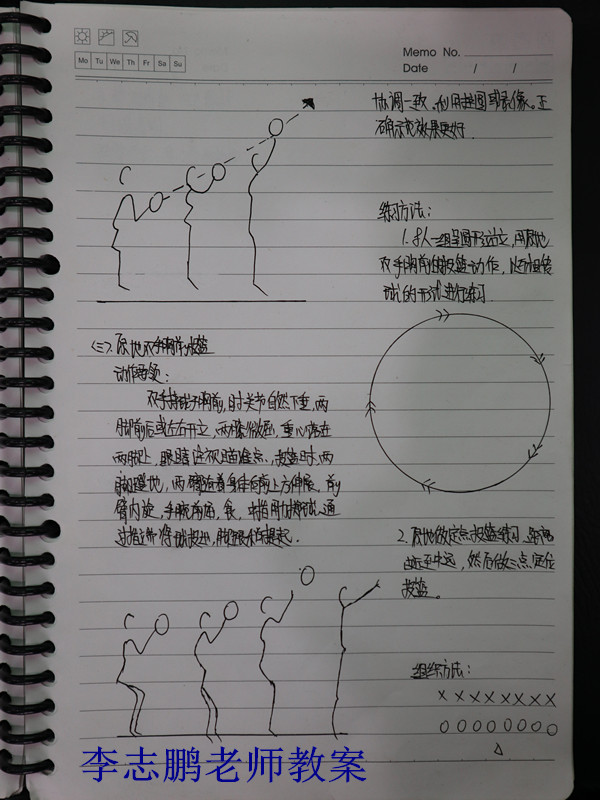 Memo No.
Date / /
Mo Tu We Th Fr Sa Su
协调一致,利用挂图或录像。正
确示范效果更好.
练习方法:
1. 多人一组呈圆形站立,用原地
双手胸前投篮动作,以互相传
球的形式进行练习.
(三)、原地双手胸前投篮
动作要领:
双手持球于胸前,肘关节自然下垂,两
脚前后或左右开立,两膝微屈,重心落在
两脚上,眼睛注视瞄准点。投篮时,两
脚蹬地,两臂随着身体向前上方伸展,前
臂内旋,手腕前屈,食、中指用力拨球,通
过指尖将球投出,脚跟提起.
2. 原地做定点投篮练习,距离
由近至中远,然后做三点定位
投篮。
组织方法:
× × × × × × × ×
○ ○ ○ ○ ○ ○ ○ ○
△
李志鹏老师教案